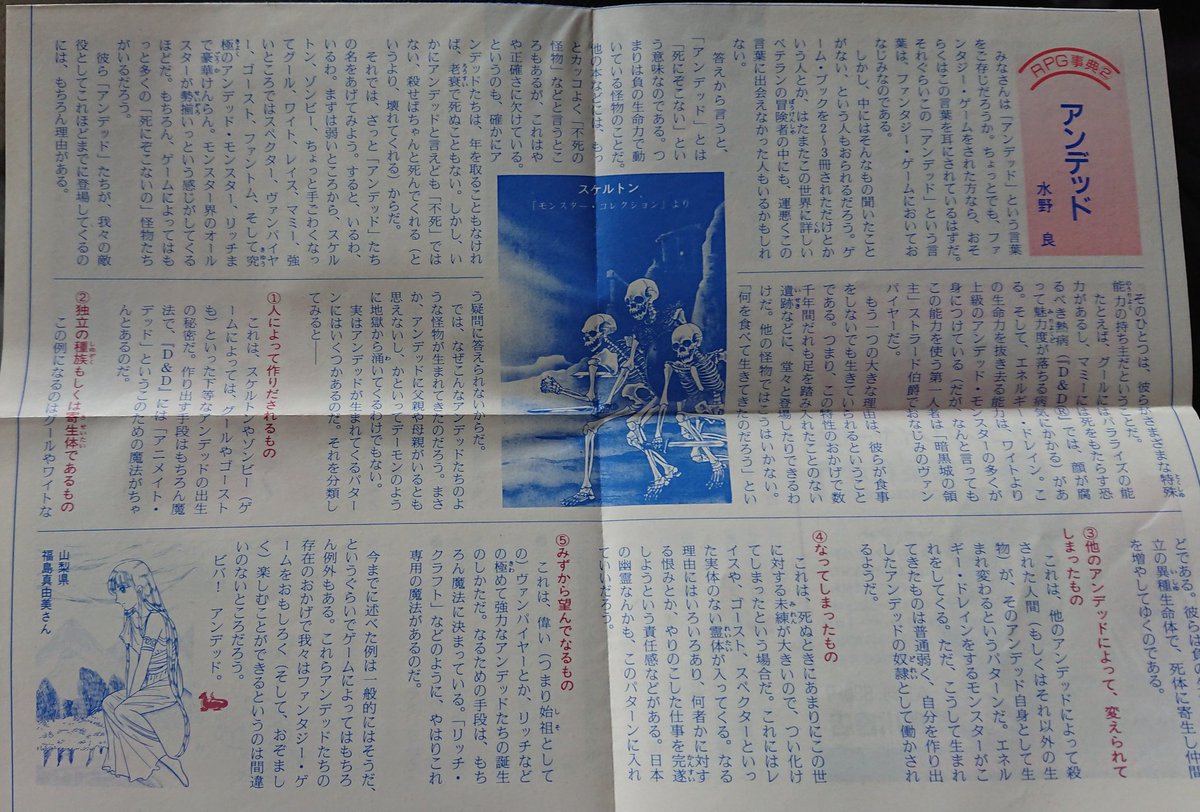 RPG事典2
アンデッド
水野 良
みなさんは「アンデッド」という言葉
をご存じだろうか。ちょっとでも、ファ
ンタジー・ゲームをされた方なら、おそ
らくはこの言葉を耳にされているはずだ。
それぐらいこの「アンデッド」という言
葉は、ファンタジー・ゲームにおいてお
なじみなのである。
しかし、中にはそんなもの聞いたこと
がない、という人もおられるだろう。ゲ
ーム・ブックを2〜3冊されただけとか
いう人とか、はたまたこの世界に詳しい
ベテランの冒険者の中にも、運悪くこの
言葉に出会えなかった人もいるかもしれ
ない。
答えから言うと、
「アンデッド」とは
「死にぞこない」とい
う意味なのである。つ
まりは負の生命力で動
いている怪物のことだ。
他の本などには、もっ
とカッコよく「不死の
怪物」などと言うとこ
ろもあるが、これはや
や正確さに欠けている。
というのも、確かにア
ンデッドたちは、年を取ることもなけれ
ば、老衰で死ぬこともない。しかし、い
かにアンデッドと言えども「不死」では
ない、殺せばちゃんと死んでくれる（と
いうより、壊れてくれる）からだ。
それでは、ざっと「アンデッド」たち
の名をあげてみよう。すると、いるわ、
いるわ。まずは弱いところから、スケル
トン、ゾンビー、ちょっと手ごわくなっ
てグール、ワイト、レイス、マミー、強
いところではスペクター、ヴァンパイヤ
ー、ゴースト、ファントム、そして究
極のアンデッド・モンスター、リッチま
で豪華けんらん。モンスター界のオール
スターが勢揃いっという感じがしてくる
ほどだ。もちろん、ゲームによってはも
っと多くの「死にぞこない」の怪物たち
がいるだろう。
彼ら「アンデッド」たちが、我々の敵
役としてこれほどまでに登場してくるの
には、もちろん理由がある。
スケルトン
『モンスター・コレクション』より
そのひとつは、彼らがさまざまな特殊
能力の持ち主だということだ。
たとえば、グールにはパラライズの能
力があるし、マミーには死をもたらす恐
るべき熱病（「D&D®」では、顔が腐
って魅力度が落ちる病気にかかる）があ
る。そして、エネルギー・ドレイン。こ
の生命力を抜き去る能力は、ワイトより
上級のアンデッド・モンスターの多くが
身につけている（だが、なんと言っても
この能力を使う第一人者は「暗黒城の領
主」ストラード伯爵でおなじみのヴァン
パイヤーだ）。
もう一つの大きな理由は、彼らが食事
をしないでも生きていられるということ
である。つまり、この特性のおかげで数
千年間だれも足を踏み入れたことのない
遺跡などに、堂々と登場したりできるわ
けだ。他の怪物ではこうはいかない。
「何を食べて生きてきたのだろう」とい
う疑問に答えられないからだ。
では、なぜこんなアンデッドたちのよ
うな怪物が生まれてきたのだろう。まさ
か、アンデッドに父親や母親がいるとも
思えないし、かといってデーモンのよう
に地獄から涌いてくるわけでもない。
実はアンデッドが生まれてくるパター
ンにはいくつかあるのだ。それを分類し
てみると――
①人によって作りだされるもの
これは、スケルトンやゾンビー（ゲ
ームによっては、グールやゴースト
も）といった下等なアンデッドの出生
の秘密だ。作り出す手段はもちろん魔
法で、「D&D」には「アニメイト・
デッド」というこのための魔法がちゃ
んとあるのだ。
②独立の種族もしくは寄生体であるもの
この例になるのはグールやワイトな
どである。彼らは負
立の異種生命体で、死体に寄生し仲間
を増やしてゆくのである。
③他のアンデッドによって、変えられて
しまったもの
これは、他のアンデッドによって殺
された人間（もしくはそれ以外の生
物）が、そのアンデッド自身として生
まれ変わるというパターンだ。エネル
ギー・ドレインをするモンスターがこ
れをしてくる。ただ、こうして生まれ
てきたものは普通弱く、自分を作り出
したアンデッドの奴隷として働かされ
るようだ。
④なってしまったもの
これは、死ぬときにあまりにこの世
に対する未練が大きいので、つい化け
てしまったという場合だ。これにはレ
イスや、ゴースト、スペクターといっ
た実体のない霊体が入ってくる。なる
理由にはいろいろあり、何者かに対す
る恨みとか、やりのこした仕事を完遂
しようという責任感などがある。日本
の幽霊なんかも、このパターンに入れ
ていいだろう。
⑤みずから望んでなるもの
これは、偉い（つまり始祖として
の）ヴァンパイヤーとか、リッチなど
の極めて強力なアンデッドたちの誕生
のしかただ。なるための手段は、もち
ろん魔法に決まっている。「リッチ・
クラフト」などのように、やはりこれ
専用の魔法があるのである。
今までに述べた例は一般的にはそうだ、
というぐらいでゲームによってはもちろ
ん例外もある。これらアンデッドたちの
存在のおかげで我々はファンタジー・ゲ
ームをおもしろく（そして、おぞまし
く）楽しむことができるというのは間違
いのないところだろう。
ビバ！　アンデッド。
山梨県
福島真由美さん